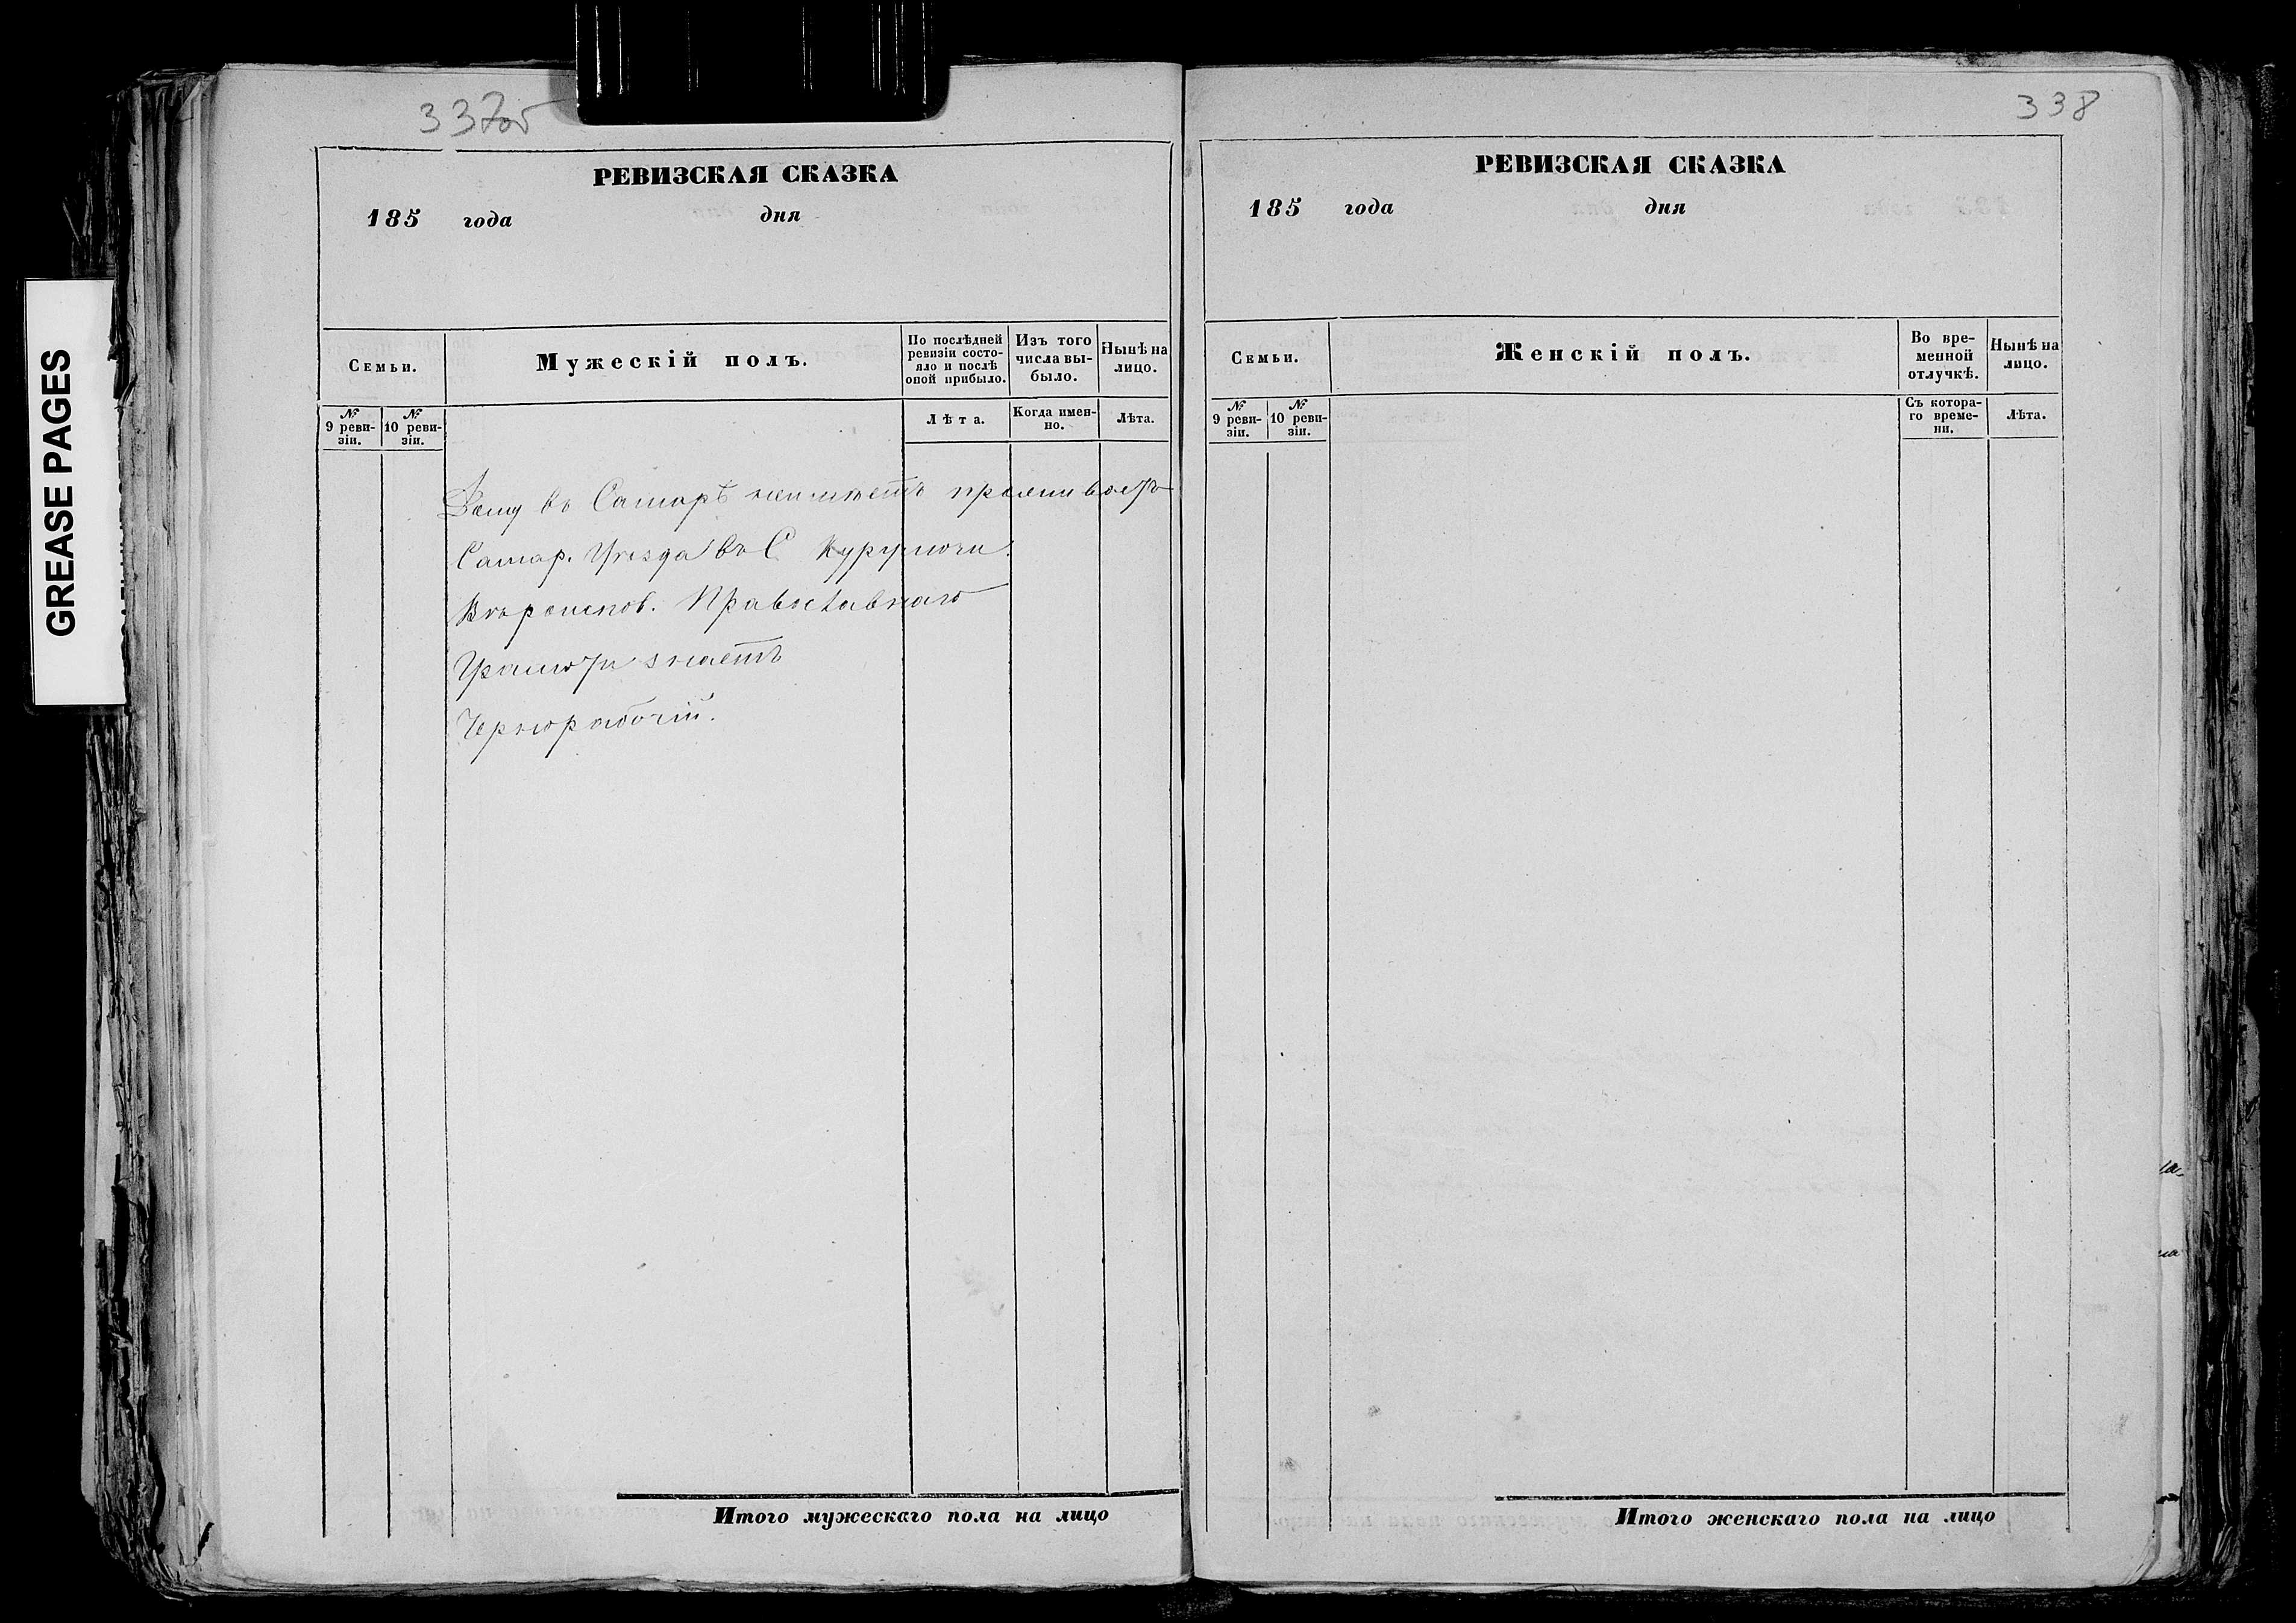 GREASE PAGES
337об
РЕВИЗСКАЯ СКАЗКА
185 года дня
Семьи.
Мужескій полъ.
По послѣдней ревизіи состояло и послѣ оной прибыло.
Изъ того числа выбыло.
Нынѣ на лицо.
№ 9 ревизіи.
№ 10 ревизіи.
Лѣта.
Когда именно.
Лѣта.
Дому въ Самарѣ неимѣетъ проживаетъ
Самар. Уѣзда въ С Курумочи.
Вѣроиспов. Православнаго
Грамоту знаетъ
Чернорабочій.
Итого мужескаго пола на лицо
338
РЕВИЗСКАЯ СКАЗКА
185 года дня
Семьи.
Женскій полъ.
Во временной отлучкѣ.
Нынѣ на лицо.
№ 9 ревизіи.
№ 10 ревизіи.
Съ котораго времени.
Лѣта.
Итого женскаго пола на лицо